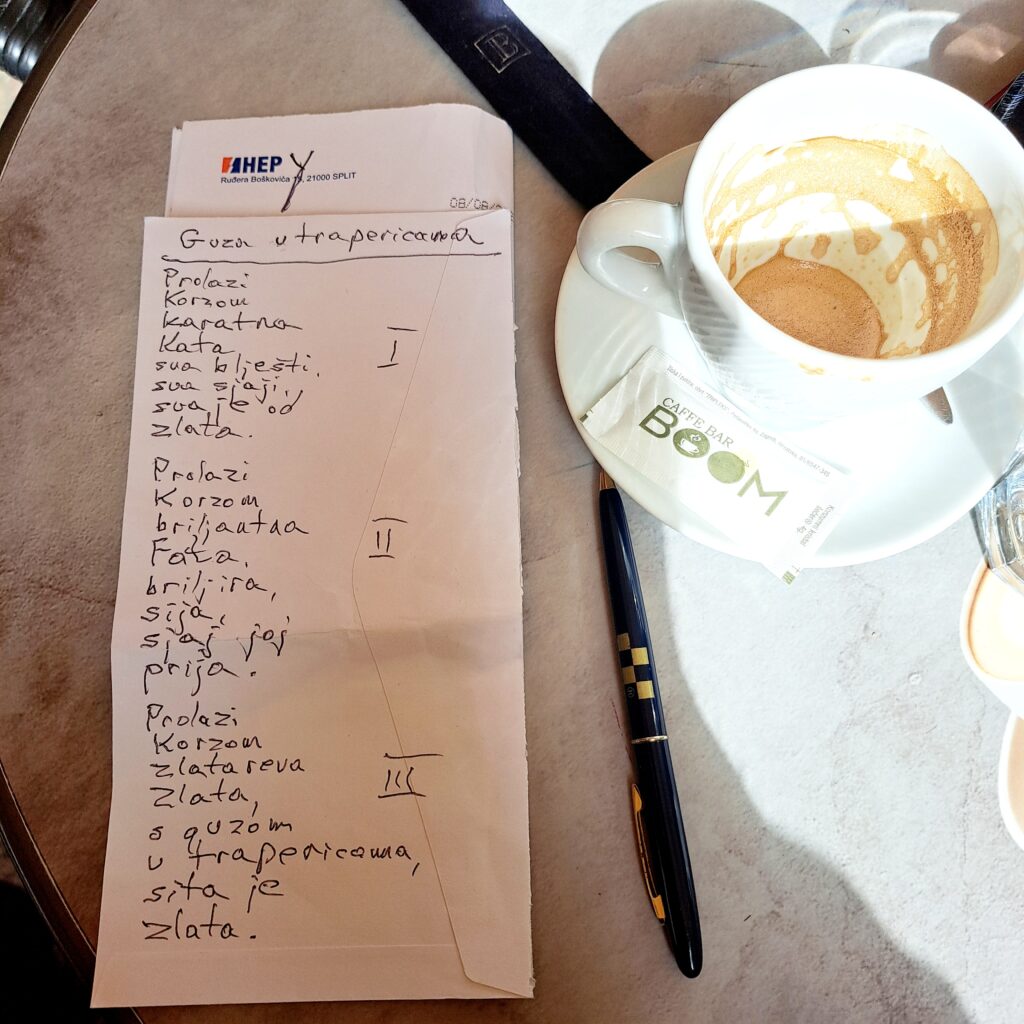 B
HEP
Ruđera Boškovića 19, 21000 SPLIT
08/08/
Guza u trapericama
Prolazi
Korzom
karatna
Kata,
sva blješti,
sva sjaji,
sva je od
zlata.
I
Prolazi
Korzom
briljantna
Fata,
briljira,
sija,
sjaj joj
prija.
II
Prolazi
Korzom
zlatareva
Zlata,
s guzom
u trapericama,
sita je
zlata.
III
CAFFE BAR
BOOM